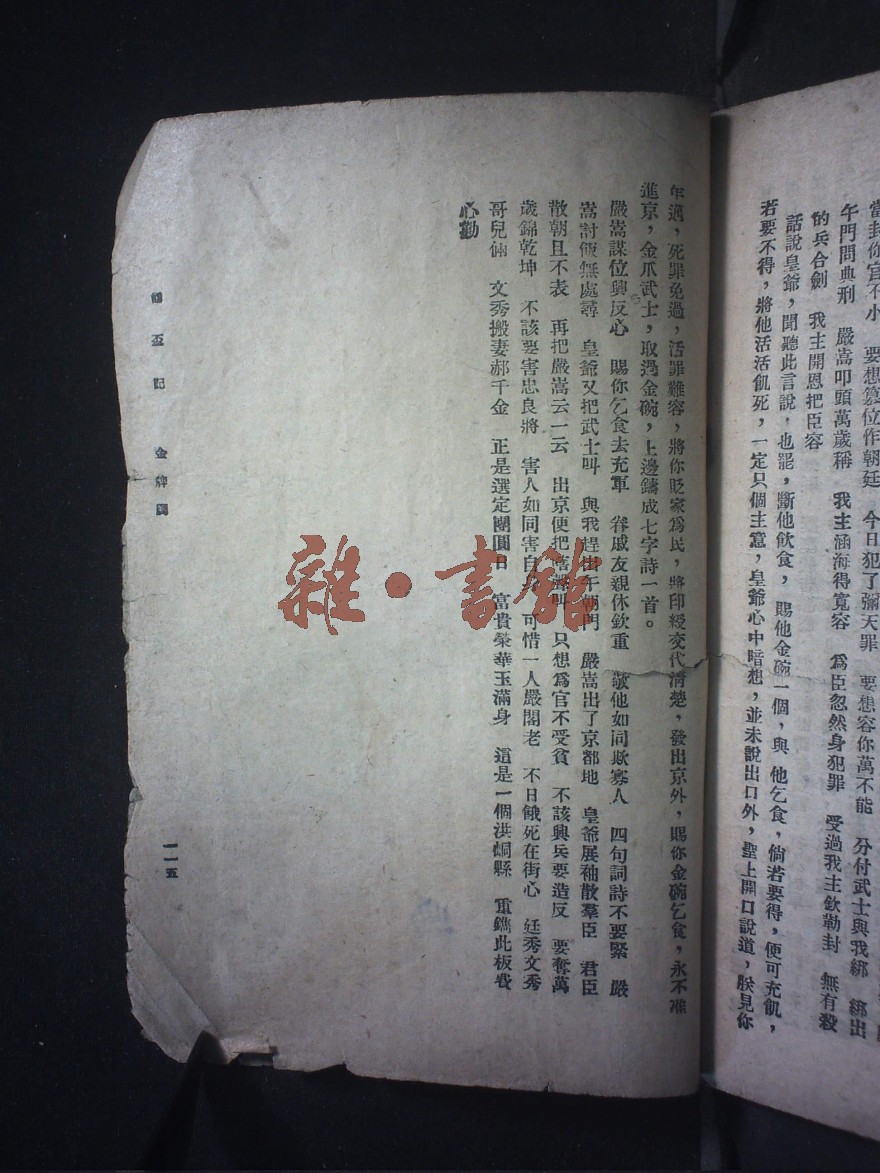 當封你官不小　要想篡位作朝廷　今日犯了彌天罪　要想容你萬不能　分付武士與我綁　綁出
午門問典刑　嚴嵩叩頭萬歲稱　我主涵海得寬容　為臣忽然身犯罪　受過我主欽勒封　無有殺
的兵合劍　我主開恩把臣容
話說皇爺，聞聽此言說，也罷，斷他飲食，賜他金碗一個，與他乞食，倘若要得，便可充飢，
若要不得，將他活活飢死，一定只個主意，皇爺心中暗想，並未說出口外，聖上開口說道，朕見你
年邁，死罪免過，活罪難容，將你貶家為民，將印綬交代清楚，發出京外，賜你金碗乞食，永不准
進京，金爪武士，取過金碗，上邊鑄成七字詩一首。
嚴嵩謀位興反心　賜你乞食去充軍　眷戚友親休欽重　敬他如同欺寡人　四句詞詩不要緊　嚴
嵩討飯無處尋　皇爺又把武士叫　與我趕出午朝門　嚴嵩出了京都地　皇爺展袖散羣臣　君臣
散朝且不表　再把嚴嵩云一云　出京便把　只想為官不受貧　不該興兵要造反　要奪萬
歲錦乾坤　不該要害忠良將　害人如同害自　可惜一人嚴閣老　不日餓死在街心　廷秀文秀
哥兒倆　文秀搬妻郝千金　正是選定團圓日　富貴榮華玉滿身　這是一個洪峒縣　重鐫此板
心勸
盃記　金牌
一一五
雜·書館